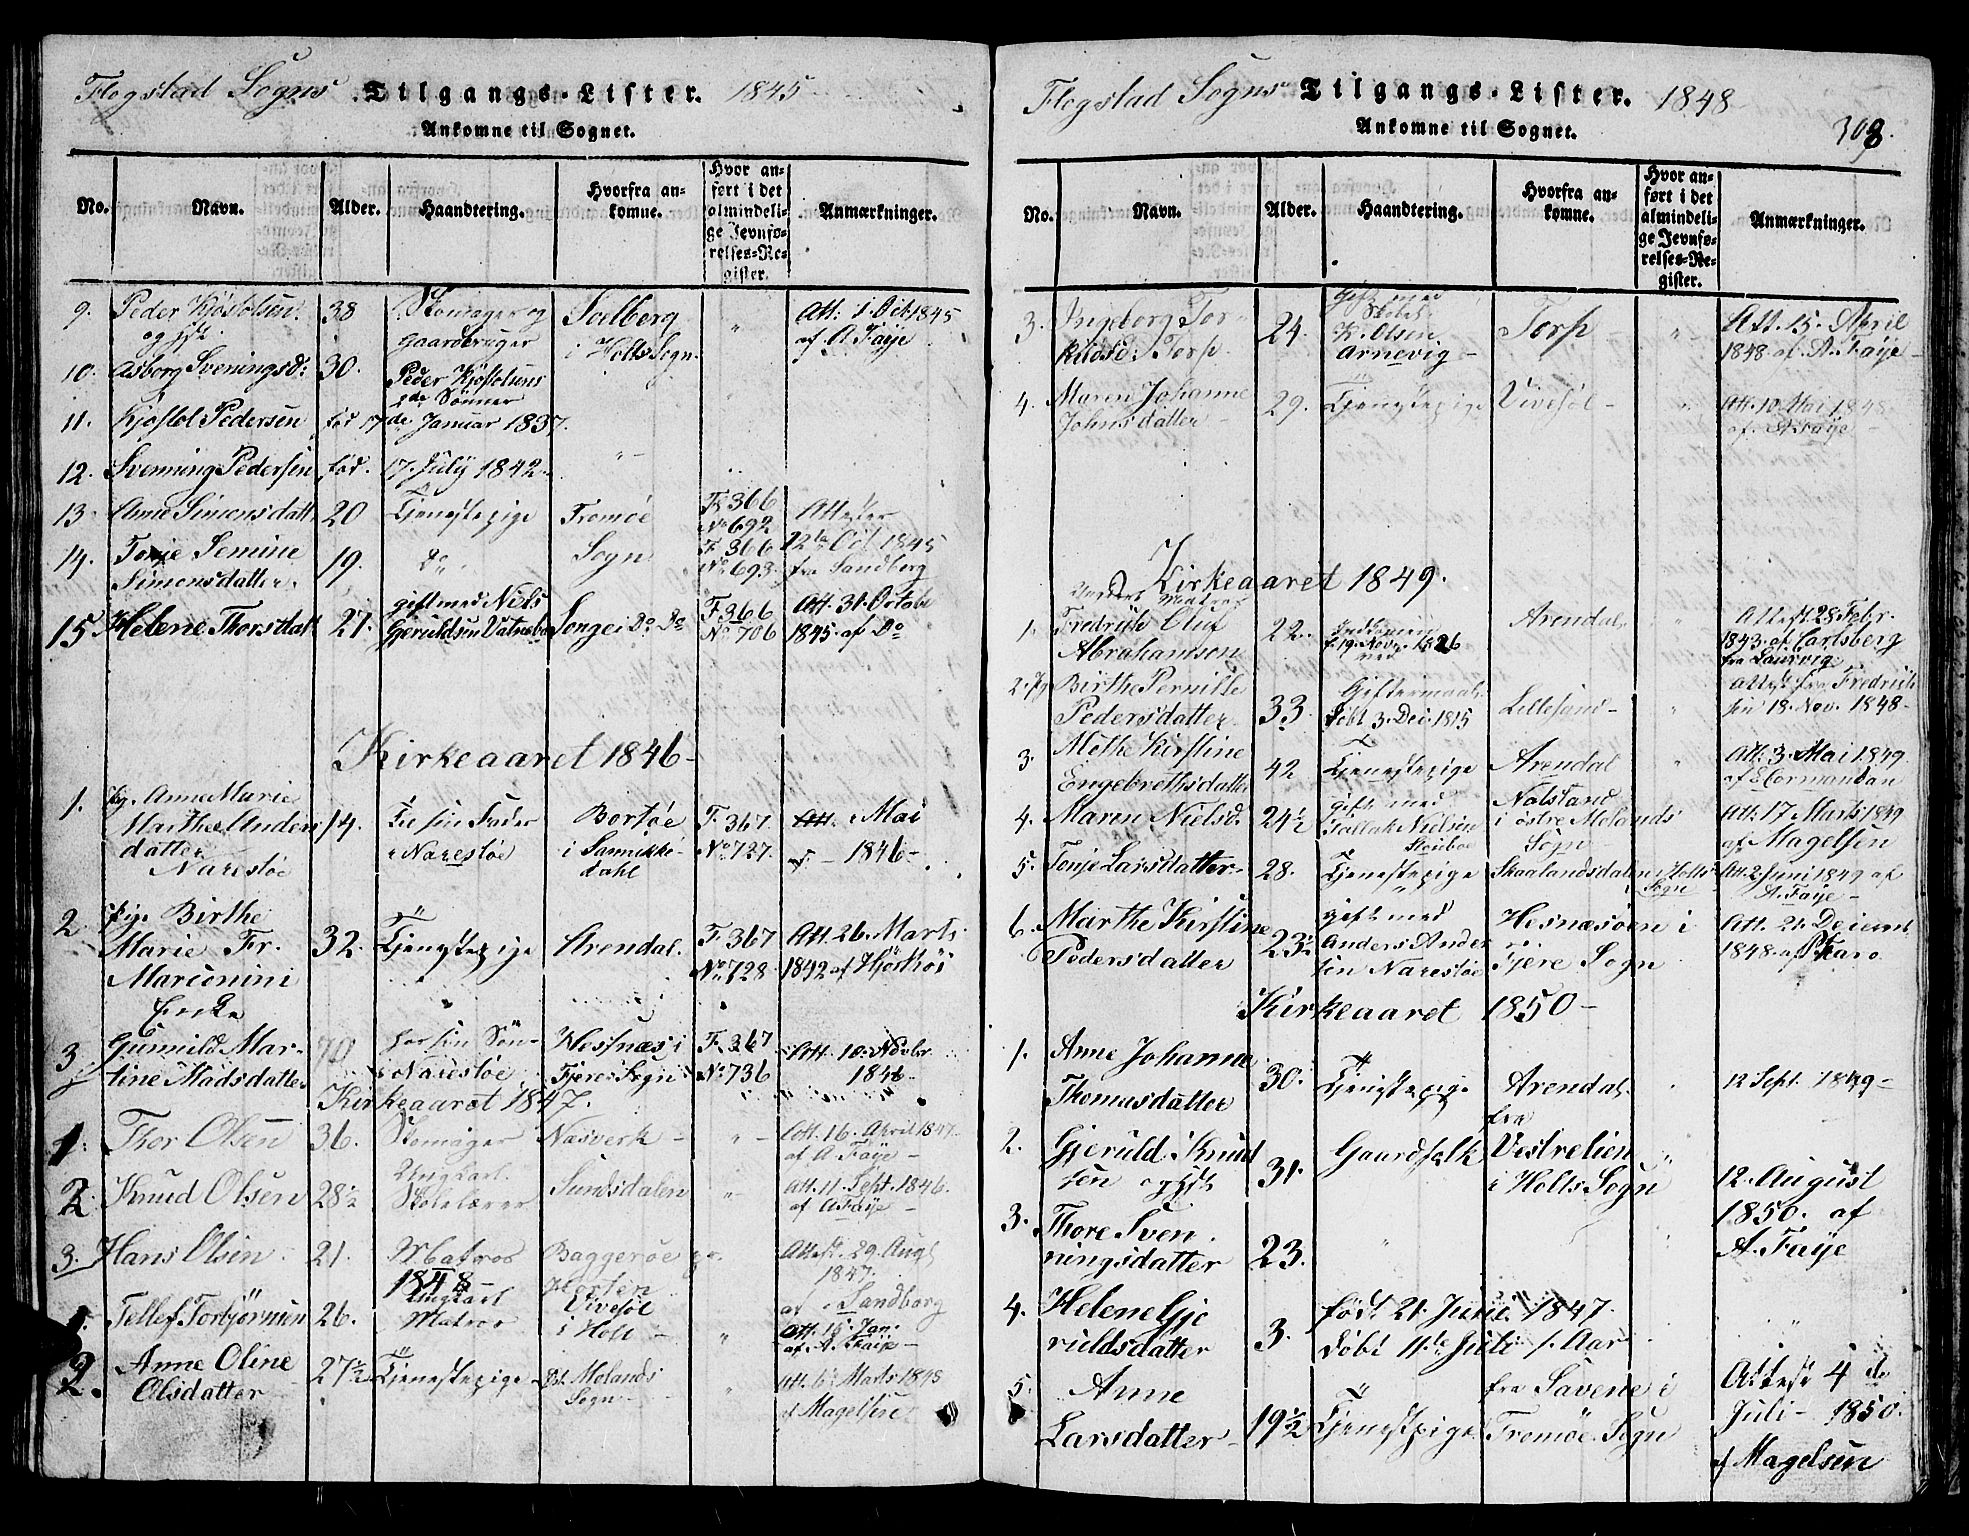 Flogstad Sogns Tilgangs-Lister. 1845
Ankomne til Sognet.
No. Navn. Alder. Haandtering. Hvorfra ankomne. Hvor anført i det almindelige Jevnførelses-Register. Anmærkninger.
9. Peder Kjøstolsen 38 Skomager og Soelberg " Att. 1 Oct. 1845
og gaardbruger i Holts Sogn af A Faÿe
10. Asborg Sveningsd: 30. Peder Kjøstolsens
2de Sønner
11. Kjøstol Pedersen fød 17de Januar 1837.
12. Svenning Pedersen fød. 17. July 1842. "
13. Anne Simonsdatt 20 Tjenestepige Tromøe F. 366 Attester
No 692
14. Tonje Semine 19. Do Sogn F. 366 12te Oct 1845
Simonsdatter. No 693. fra Sandberg
15 Helene Thorsdatt 27. gift med Niels Songe i Do Do F. 366 Att. 31. Octob
Gjeruldsen Vatnebo No 706 1845. af Do
Kirkeaaret 1846
1. Pg. Anne Marie
Marthea Anders 14. Til sin Fader Bortøe F. 367 Att. i Mai
datter i Narestøe i Sannikke- No 727. af - 1846
Narestøe dahl
2 Pige Birthe
Marie Fr. 32. Tjenestepige Arendal. F. 367 Att. 26. Marts
Marconini No 728 1842 af
Enke
3. Gunnild Mar- 70 hos sin Søn Hesnæs i F. 367 Att. 10. Novbr
tine Madsdatter i Narestøe Fjere Sogn No 736 1846
Kirkeaaret 1847.
1. Thor Olsen 36. Skomager Nasverk - " - Att. 16. April 1847
af A Faÿe -
2. Knud Olsen 28½ Ungkarl Sundsdalen " Att. 11. Sept. 1846.
Skolelærer af A Faÿe -
3. Hans Olsen 21. Matros Baggerøe Attest. 29. Augt
1848 - Horten 1847.
af Sandberg
1. Tellef Torbjørnsen 26. Ungkarl Vivesøl Att. 16. Jan.
Matros i Holt " af A. Faÿe -
2. Anne Oline 27½ Tjenestepige Øst. Molands " Att. 6. Marts 1848
Olsdatter Sogn - af Magelsen
Flogstad Sogns Tilgangs-Lister. 1848
Ankomne til Sognet. 308.
No. Navn. Alder. Haandtering. Hvorfra ankomne. Hvor anført i det almindelige Jevnførelses-Register. Anmærkninger.
3. Ingeborg Tor- 24. Gift med Torp " Att. 15. April
kildsd. Torp K. Olsen 1848 af A. Faÿe -
Arnevig -
4. Maren Johanne 29. Tjenestepige Vivesøl - " Att. 10 Mai 1848
Johnsdatter - af A Faÿe -
Kirkeaaret 1849.
1. Fredrik Oluf 22. Arendal " Attest 28 Febr.
Abrahamson f. 19. Nov. 1826 1843. af Carlsberg
fra Laurvig
2. Pg Birthe Pernille Giftermaal. Attest fra Fredrik
Pedersdatter. 33 Døbt 3. Dec. 1815 Lillesand - " sen 18. Nov. 1848 -
3. Methe Kirstine 42 Tjenestepige Arendal " Att. 3. Mai 1849
Engebrethsdatter af Hormandsan
4. Maren Nielsd. 24½ gift med Nalstand Att. 17 Marts 1849
Tallak Nielsen i østre Molands af Magelsen
Sogn
5. Tonje Larsdatter - 28. Tjenestepige Skaalandsdalen i Holts Att. 2 Juni 1849 af
Sogn A. Faÿe -
6. Marthe Kirstine 23½ gift med Hesnæsøen i Att. 21. Decemb
Pedersdatter Anders Ander Fjere Sogn 1848 af
sen Narestøe
Kirkeaaret 1850 -
1. Anne Johanne 30. Tjenestepige Arendal. 12 Sept. 1849 -
Thomasdatter
2. Gjeruld Knud 31. Gaardfolk fra Vestrelien "
sen og i Holts Sogn 12. August
3. Thore Sven 1850. af
ningsdatter 23. " A. Faÿe
4. Helene Gje født 21. Juni 1847.
ruldsdatter 3. Døbt 11te Juli s. Aar
5. Anne fra Savene i Attest 4de
Larsdatter 19½ Tjenestpige Tromøe Sogn Juli - 1850.
af Magelsen